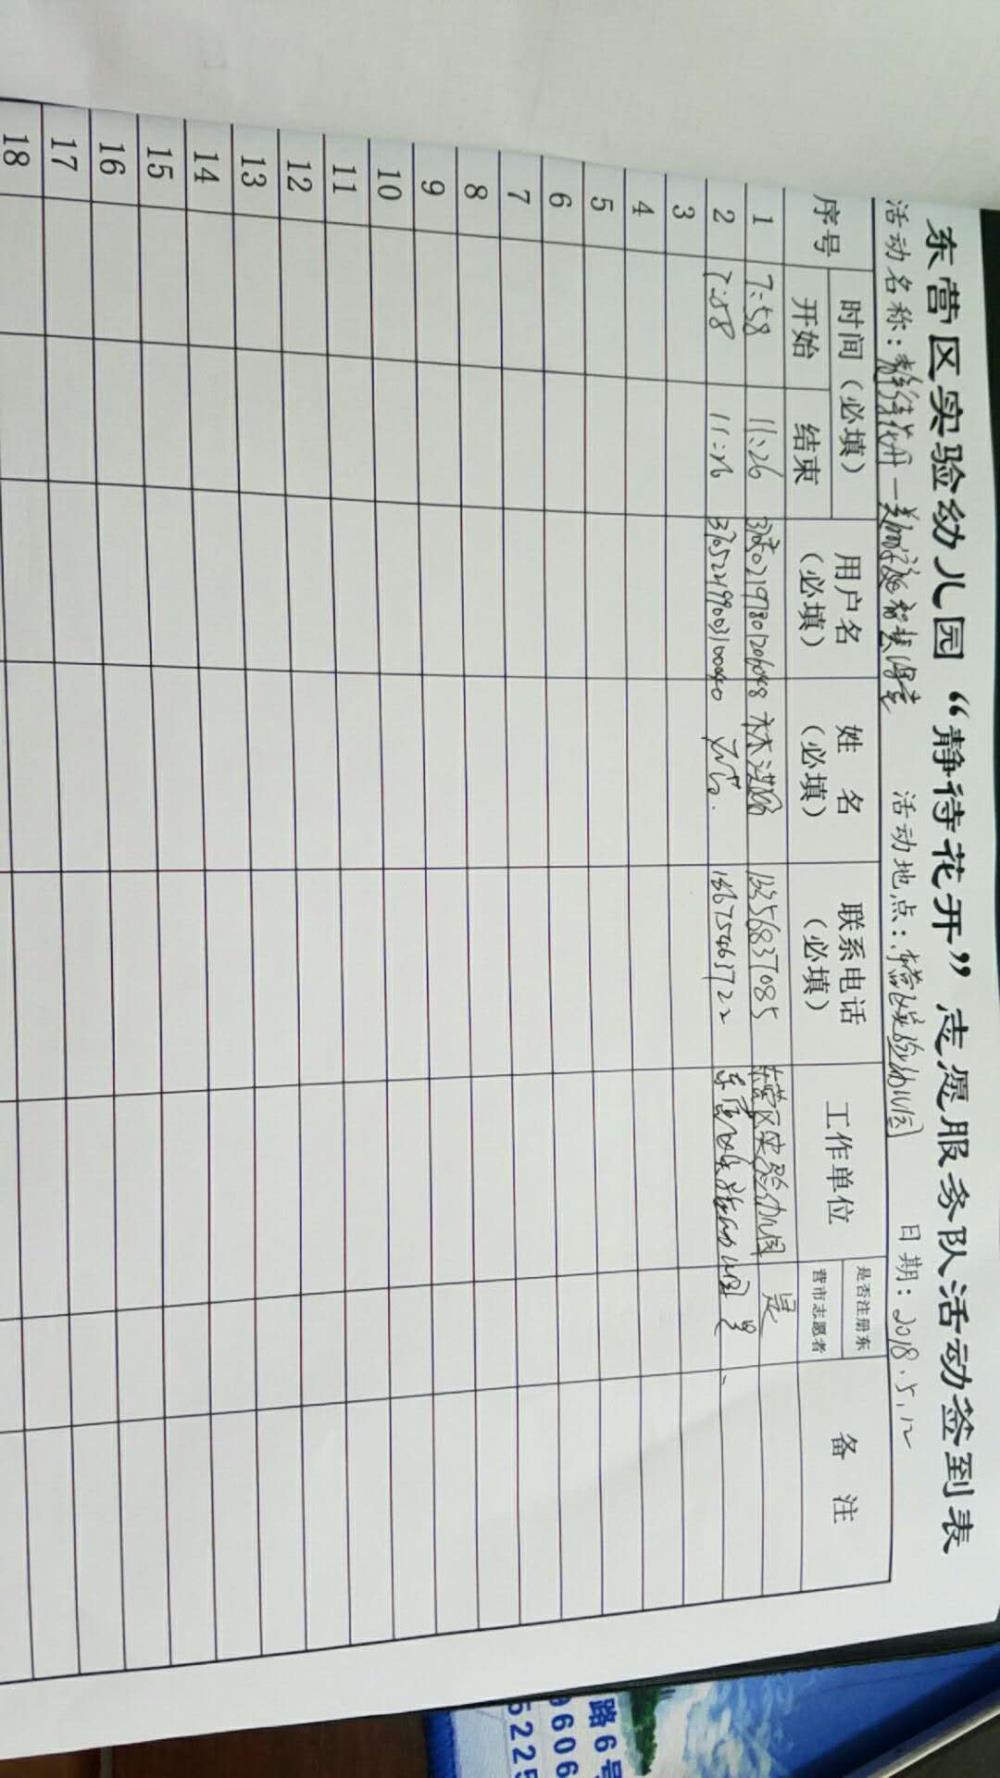 东营区实验幼儿园“静待花开”志愿服务队活动签到表
活动名称：静待花开 活动地点：东营区实验幼儿园 日期：2018.5.12
序号 时间（必填） 用户名（必填） 姓 名（必填） 联系电话（必填） 工作单位 是否注册东营市志愿者 备 注
开始 结束
1 7:58 11:26 13356837085 东营区实验幼儿园 是
2 7:58 11:26 东营区实验幼儿园 是
3
4
5
6
7
8
9
10
11
12
13
14
15
16
17
18
路6号
9606
5225